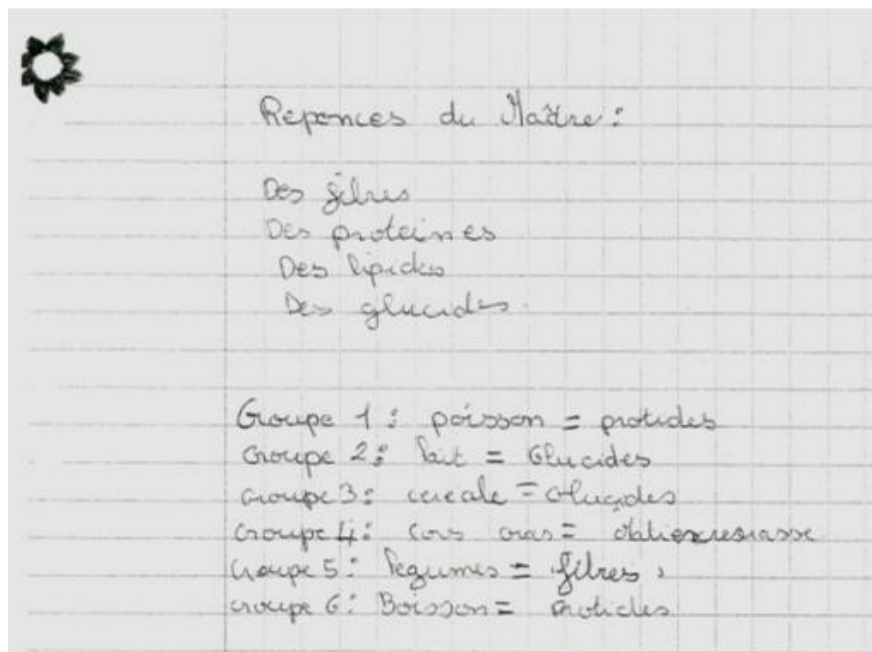 Reponces du Maître :
Des fibres
Des proteines
Des lipides
Des glucides.
Groupe 1 : poisson = protides
Groupe 2 : lait = Glucides
Groupe 3 : cereale = Glucides
Groupe 4 : cors gras =
Groupe 5 : légumes = fibres
Groupe 6 : Boisson = protides